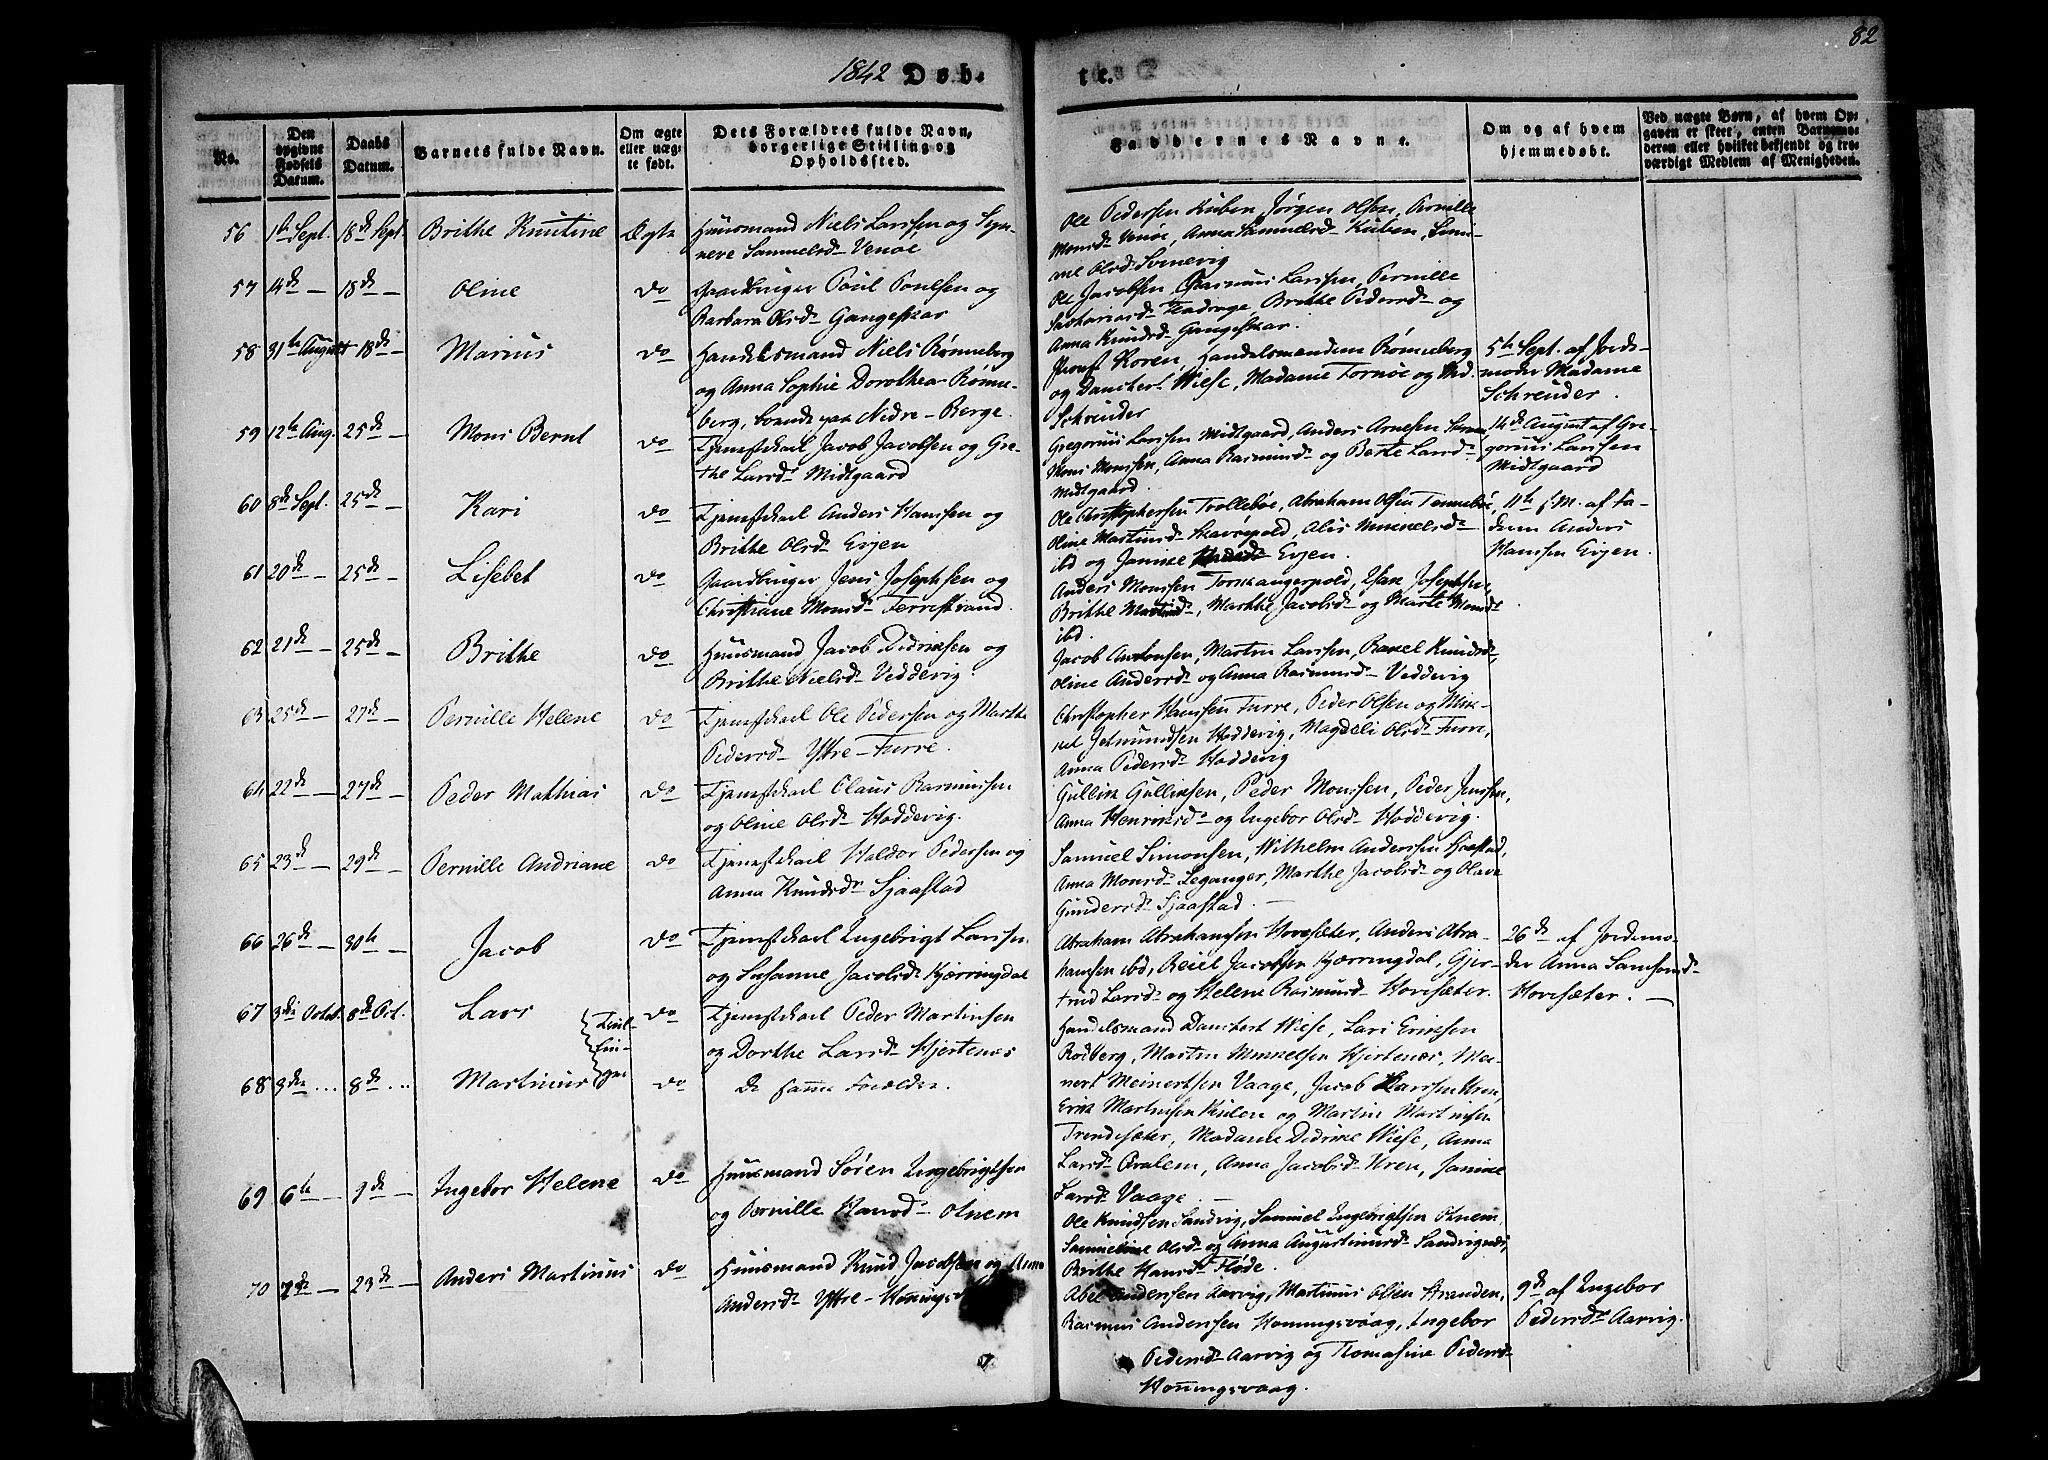 82
1842 Døb-
te.
No.
Den opgivne Fødsels Datum.
Daabs Datum.
Barnets fulde Navn.
Om ægte eller uægte født.
Dets Forældres fulde Navn, borgerlige Stilling og Opholdssted.
Faddernes Navne.
Om og af hvem hjemmedøbt.
Ved uægte Børn, af hvem Opgaven er skeet, enten Barnemoderen eller hvilket bekjendt og troværdigt Medlem af Menigheden.
56 1te Sept. 18de Sept. Brithe Knutine Ægte Huusmand Niels Larssen og Syn-
neve Sammelsd. Venøe
Ole Pedersen Kuben, Jørgen Olsen, Pernille
Monsd. Venøe, Anna Sammelsd. Kuben,
Olsd. Svinevig
57 14de - 18de - Oline do Gaardbruger Poul Poulsen og
Barbara Olsd. Gangeskar
Ole Jacobsen, Rasmus Larssen, Pernille
Sachariasd. Brithe Pedersd. og
Anna Knudsd. Gangeskar.
58 31te August 18de - Marius do Handelsmand Niels Rønneberg
og Anna Sophie Dorothea Rønne-
berg, boende paa Nedre-Berge.
Provst Koren, Handelsmændene Rønneberg
og Danchert Wiese, Madame Tornøe og Md.
Schreuder
5te Sept. af Jorde-
moder Madame
Schreuder.
59 12te Aug. 25de - Mons Bernt do Tjenestekarl Jacob Jacobsen og Gre-
the Larsd. Midtgaard
Gregorius Larssen Midtgaard, Anders Arnesen
Mons Monssen, Anna Rasmusd. og Berte Larsd.
Midtgaard
14de August af Gre-
gorius Larssen
Midtgaard
60 8de Sept. 25de - Kari do Tjenestekarl Anders Hanssen og
Brithe Olsd. Ervjen
Ole Christophersen Trollebøe, Abraham Olsen Tennebøe,
Oline Martinsd. Skavøepold, Alis Mikkelsd.
ibd og Janikke Ervjen.
11te s. M. af Fa-
deren Anders
Hanssen Ervjen.
61 20de - 25de - Lisebet do Gaardbruger Jens Josephsen og
Christiane Monsd. Færrestrand
Anders Monssen Torskangerpold, Isak Josephsen,
Brithe Martinsd., Marthe Jacobsd. og Marte Monsd.
ibd.
62 21de - 25de - Brithe do Huusmand Jacob Didriksen og
Brithe Nielsd. Veddevig
Jacob Antonsen, Martin Larssen, Rakel Knudsd.,
Oline Andersd. og Anna Rasmusd. Veddevig
63 25de - 27de - Pernille Helene do Tjenestekarl Ole Pedersen og Marthe
Pedersd. Yttre-Furre.
Christopher Hanssen Furre, Peder Olsen og Mik-
kel Jetmundsen Hoddevig, Magdeli Olsd. Furre,
Anna Pedersd. Hoddevig
64 22de - 27de - Peder Mathias do Tjenestekarl Claus Rasmussen
og Oline Olsd. Hoddevig.
Gullik Gulliksen, Peder Monssen, Peder Jenssen,
Anna Henriksd. og Ingebor Olsd. Hoddevig.
65 23de 29de - Pernille Andriane do Tjenestekarl Haldor Pedersen og
Anna Knudsd. Sjaastad
Samuel Simonsen, Wilhelm Anderssen Sjaastad,
Anna Monsd. Leganger, Marthe Jacobsd. og Olave
Gundersd. Sjaastad. -
66 26de - 30te - Jacob do Tjenestekarl Ingebrigt Larssen
og Susanne Jacobsd. Kjærringdal
Abraham Abrahamsen Hovesæter, Anders Abra-
hamsen ibd, Reiel Jacobsen Kjærringdal, Gjer-
trud Larsd. og Helene Rasmusd. Hovesæter.
26de af Jordemo-
der Anna Samsonsd.
Hovesæter. -
67 3die Octob. 8de Oct. Lars do Tjenestekarl Peder Martinsen
og Dorthe Larsd. Hjertenæs
Tvil-
lin-
ger
Handelsmand Danchert Wiese, Lars Eriksen
Rodberg, Martin Mikkelsen Hjertenæs, Mei-
68 3die ... 8de ... Martinus do De samme Forældre.
nert Meinertsen Vaage, Jacob Larssen Uren,
Erik Martinsen Kulen og Martin Martinsen
Trendesæter, Madame Didrikke Wiese, Anna
Larsd. Anna Jacobsd. Uren, Janikke
Larsd. Vaage. -
69 6te - 9de - Ingebor Helene do Huusmand Søren Ingebrigtsen
og Pernille Hansd. Otnem
Ole Knudsen Sandvig, Samuel Ingebrigtsen Otnem,
Sammeline Olsd. og Anna Augustinusd. Sandvignæs,
Brithe Hansd. Fløde.
70 7de - 23de - Anders Martinus do Huusmand Knud Jacobsen og Anna
Andersd. Yttre-Honingsv
Abel Anderssen Aarvig, Martinus Olsen Stranden,
Rasmus Anderssen Honningsvaag, Ingebor
Pedersd. Aarvig og Thomasine Pedersd.
Honningsvaag.
9de af Ingebor
Pedersd. Aarvig.